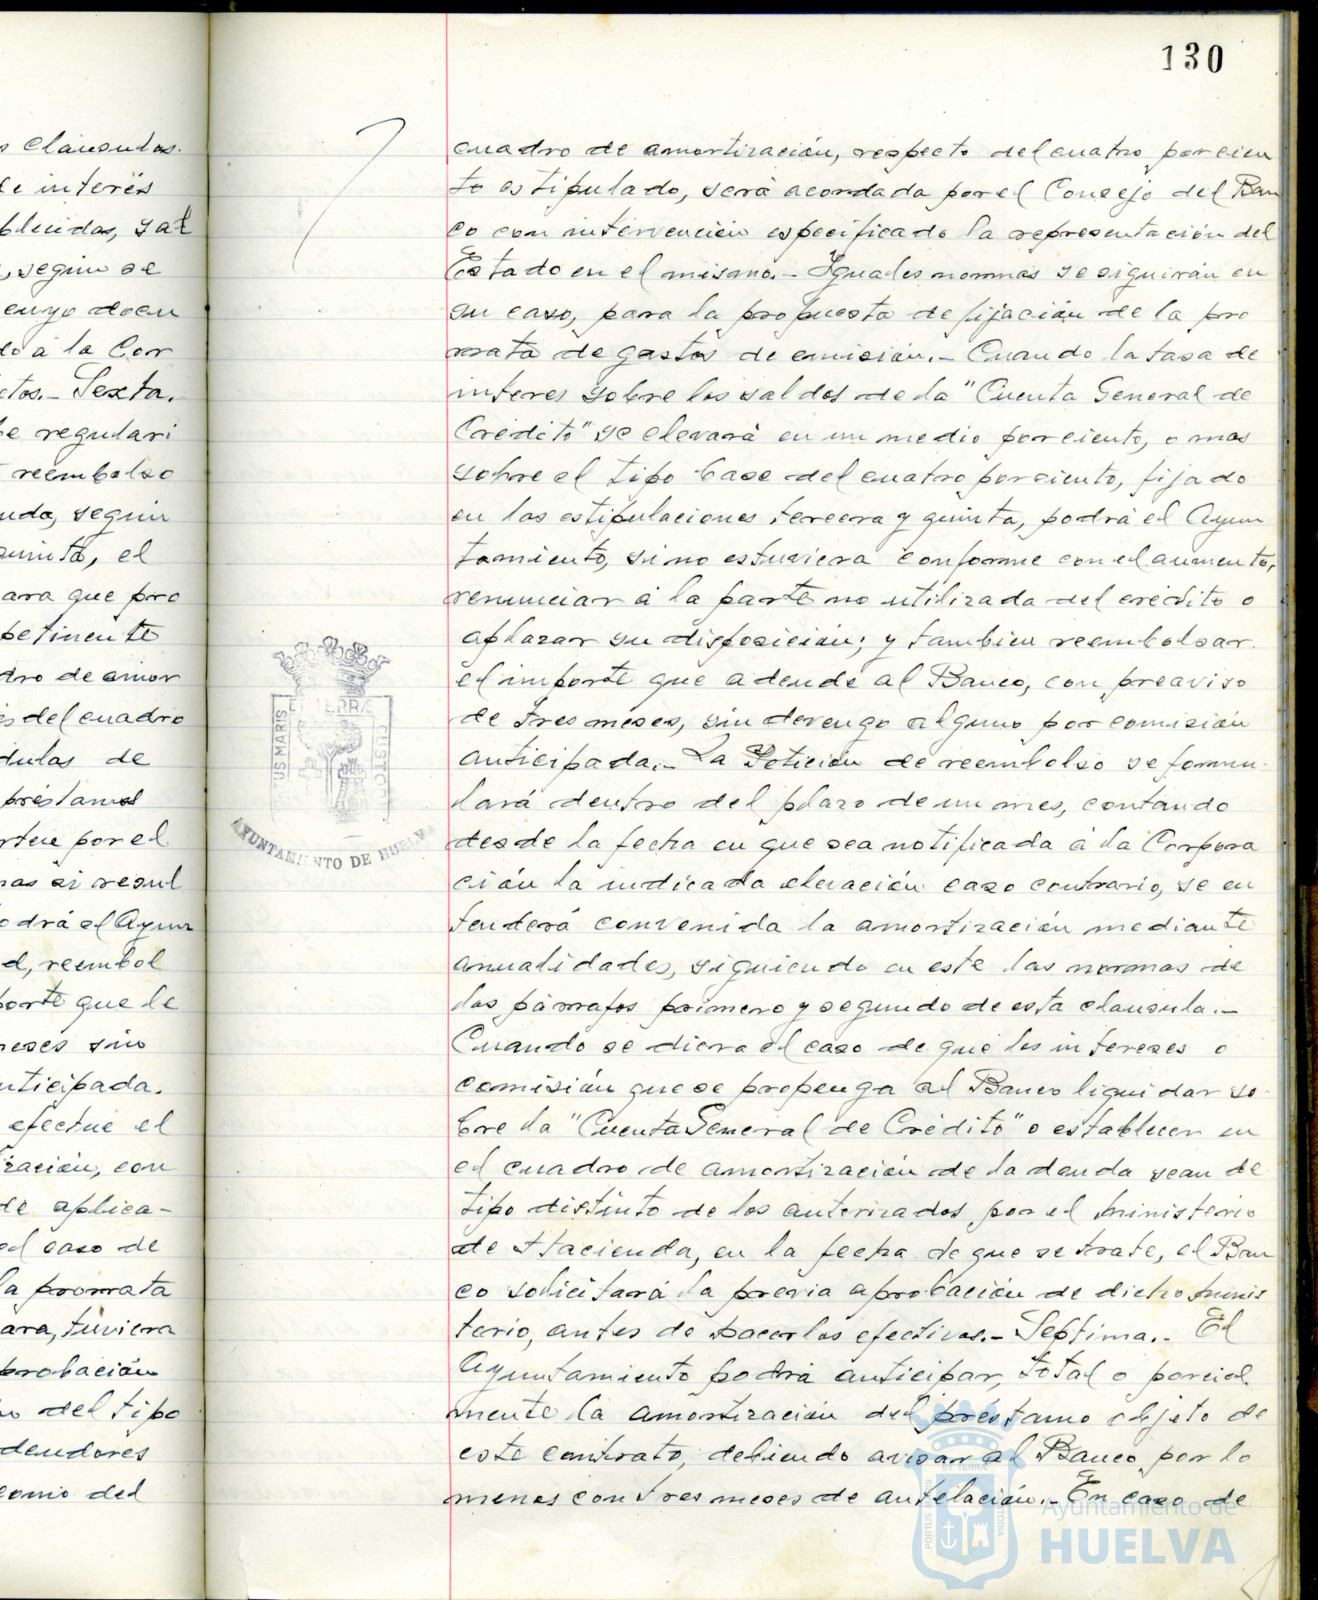 s clausulas.
de interés
blecidas, sal
, segun se
cuyo docu
do á la Cor
ctos.- Sexta.
be regulari
reembolso
uda, segun
quinta, el
ara que pro
petinente
dro de amor
és del cuadro
dulas de
préstamos
por el
mas si resul
odrá el Ayun
d, reembol
porte que le
meses sin
nticipada.
efectue el
zación, con
de aplica-
el caso de
la prorrata
ara, tuviera
probación
del tipo
deudores
como del
130
cuadro de amortización, respecto del cuatro por cien
to estipulado, será acordada por el Consejo del Ban
co con intervención especificado la representación del
Estado en el mismo.- Iguales normas se siguirán en
su caso, para la propuesta de fijación de la pro
rrata de gastos de emisión.- Cuando la tasa de
interes sobre los saldos de la "Cuenta General de
Crédito" se elevará en un medio por ciento, o mas
sobre el tipo base del cuatro por ciento, fijado
en las estipulaciones tercera y quinta, podrá el Ayun
tamiento, si no estuviera conforme con el aumento,
renunciar á la parte no utilizada del crédito o
aplazar su disposición; y tambien reembolsar
el importe que adeude al Banco, con preaviso
de tres meses, sin devengo alguno por comisión
anticipada.- La Petición de reembolso se formu-
lará dentro del plazo de un mes, contando
desde la fecha en que sea notificada á la Corpora
ción la indicada elevación caso contrario, se en
tenderá convenida la amortización mediante
anualidades, siguiendo en este las normas de
los párrafos primero y segundo de esta clausula.-
Cuando se diera el caso de que los intereses o
comisión que se propenga al Banco liquidar so
bre la "Cuenta General de Crédito" o establecer en
el cuadro de amortización de la deuda sean de
tipo distinto de los autorizados por el Ministerio
de Hacienda, en la fecha de que se trate, el Ban
co solicitará la previa aprobación de dicho Minis
terio, antes de hacerlos efectivos.- Septima.- El
Ayuntamiento podrá anticipar, total o parcial
mente la amortización del préstamo objeto de
este contrato, debiendo avisar al Banco por lo
menos con tres meses de antelación.- En caso de
US MARIS
ET TERRÆ
CUSTO
AYUNTAMIENTO DE HUELVA
PORTUS
ET TERRÆ
CUSTODIA
Ayuntamiento de
HUELVA